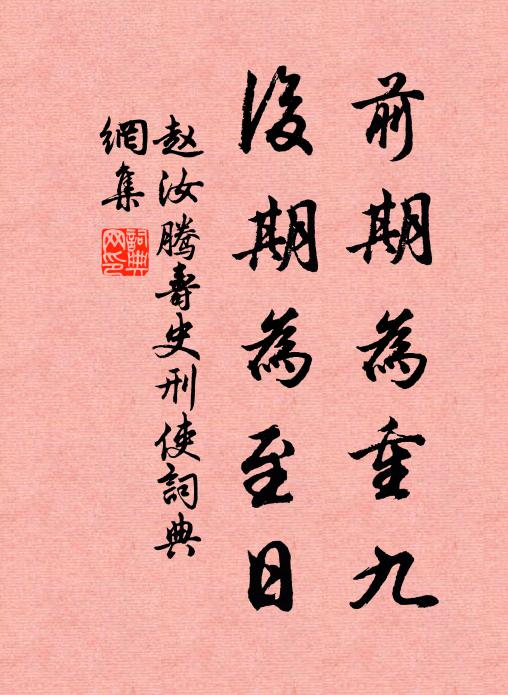 前期為重九
後期為至日
赵汝騰壽史刑使詞典
網集
詞典
网印